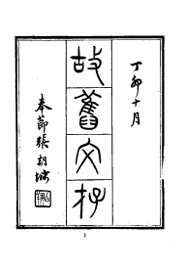 丁卯十月
故舊文存
奉節張朝墉
1